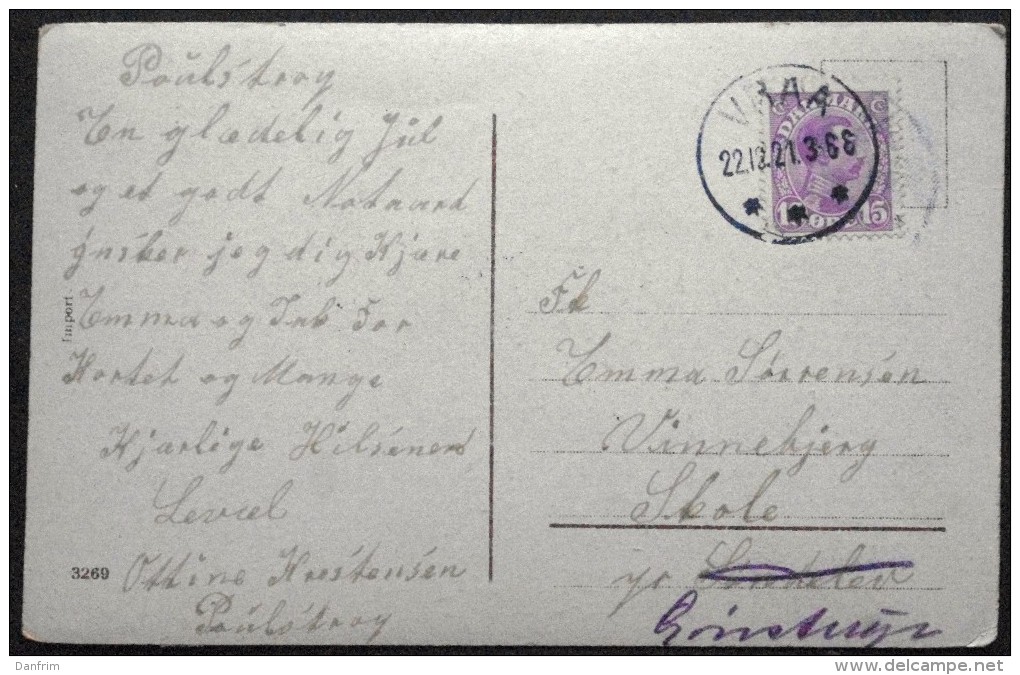 Poulstrøy
En glædelig Jül
og et godt Notaard
ÿnsker jeg dig Kjære
Emma og Tak For
Kortet og Mange
Kjærlige Hilsener
Levæl
Ottine Krestensen
Poulstrøy
Import
3269
VRAA
22.12.21. 3-6 E
DANMARK
15 ØRE 15
Frk
Emma Sørrensen
Vinnebjerg
Skole
pr
Danfrim
delcampe.net